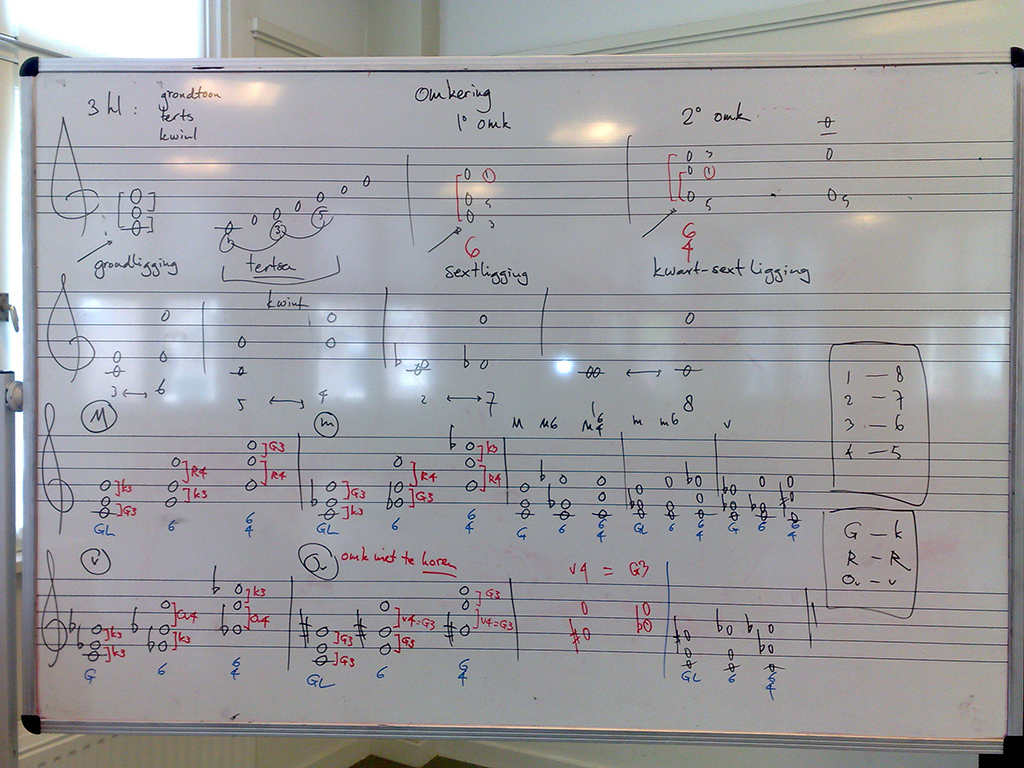 3 kl : grondtoon
terts
kwint
Omkering
1° omk
2° omk
1
3
5
1
5
3
3
1
5
5
6
6
4
grondligging
tertsen
sextligging
kwart-sext ligging
kwint
3 ↔ 6
5 ↔ 4
2 ↔ 7
1 8
1 — 8
2 — 7
3 — 6
4 — 5
M
m
M M6 M6/4 m m6 v
k3
G3
R4
k3
G3
R4
G3
k3
R4
G3
k3
R4
GL 6 6/4 GL 6 6/4 G 6 6/4 GL 6 6/4 G 6 6/4
G — k
R — R
Ov — v
v
Ov omk niet te horen
v4 = G3
k3
k3
Ov4
k3
k3
Ov4
G3
G3
v4=G3
G3
G3
v4=G3
G 6 6/4 GL 6 6/4 GL 6 6/4